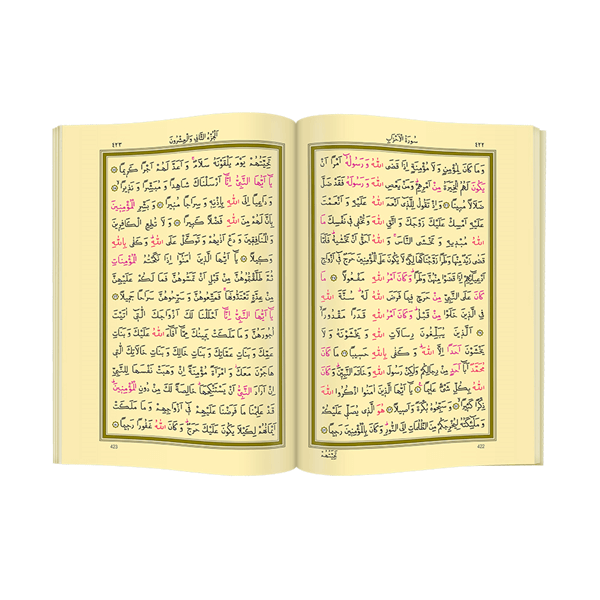 سُورَةُ الْاَحْزَابِ
٤٢٢
وَمَا كَانَ لِمُؤْمِنٍ وَلَا مُؤْمِنَةٍ اِذَا قَضَى اللّٰهُ وَرَسُولُهُٓ اَمْرًا اَنْ
يَكُونَ لَهُمُ الْخِيَرَةُ مِنْ اَمْرِهِمْ وَمَنْ يَعْصِ اللّٰهَ وَرَسُولَهُ فَقَدْ ضَلَّ
ضَلَالًا مُبِينًا وَاِذْ تَقُولُ لِلَّذِٓي اَنْعَمَ اللّٰهُ عَلَيْهِ وَاَنْعَمْتَ
عَلَيْهِ اَمْسِكْ عَلَيْكَ زَوْجَكَ وَاتَّقِ اللّٰهَ وَتُخْفِي فِي نَفْسِكَ مَا
اللّٰهُ مُبْدِيهِ وَتَخْشَى النَّاسَ وَاللّٰهُ اَحَقُّ اَنْ تَخْشٰيهُ فَلَمَّا
قَضٰى زَيْدٌ مِنْهَا وَطَرًا زَوَّجْنَاكَهَا لِكَيْ لَا يَكُونَ عَلَى الْمُؤْمِنِينَ حَرَجٌ فِٓي اَزْوَاجِ
اَدْعِيَٓائِهِمْ اِذَا قَضَوْا مِنْهُنَّ وَطَرًا وَكَانَ اَمْرُ اللّٰهِ مَفْعُولًا مَا
كَانَ عَلَى النَّبِيِّ مِنْ حَرَجٍ فِيمَا فَرَضَ اللّٰهُ لَهُ سُنَّةَ اللّٰهِ
فِي الَّذِينَ خَلَوْا مِنْ قَبْلُ وَكَانَ اَمْرُ اللّٰهِ قَدَرًا مَقْدُورًا
اَلَّذِينَ يُبَلِّغُونَ رِسَالَاتِ اللّٰهِ وَيَخْشَوْنَهُ وَلَا
يَخْشَوْنَ اَحَدًا اِلَّا اللّٰهَ وَكَفٰى بِاللّٰهِ حَسِيبًا مَا كَانَ
مُحَمَّدٌ اَبَٓا اَحَدٍ مِنْ رِجَالِكُمْ وَلٰكِنْ رَسُولَ اللّٰهِ وَخَاتَمَ النَّبِيِّنَ وَكَانَ
اللّٰهُ بِكُلِّ شَيْءٍ عَلِيمًا يَٓا اَيُّهَا الَّذِينَ اٰمَنُوا اذْكُرُوا اللّٰهَ
ذِكْرًا كَثِيرًا وَسَبِّحُوهُ بُكْرَةً وَاَصِيلًا هُوَ الَّذِي يُصَلِّي عَلَيْكُمْ
وَمَلٰٓئِكَتُهُ لِيُخْرِجَكُمْ مِنَ الظُّلُمَاتِ اِلَى النُّورِ وَكَانَ بِالْمُؤْمِنِينَ رَحِيمًا
422
تَحِيَّتُهُمْ
٤٢٣
اَلْجُزْءُ الثَّانِي وَالْعِشْرُونَ
تَحِيَّتُهُمْ يَوْمَ يَلْقَوْنَهُ سَلَامٌ وَاَعَدَّ لَهُمْ اَجْرًا كَرِيمًا
يَٓا اَيُّهَا النَّبِيُّ اِنَّٓا اَرْسَلْنَاكَ شَاهِدًا وَمُبَشِّرًا وَنَذِيرًا
وَدَاعِيًا اِلَى اللّٰهِ بِاِذْنِهِ وَسِرَاجًا مُنِيرًا وَبَشِّرِ الْمُؤْمِنِينَ
بِاَنَّ لَهُمْ مِنَ اللّٰهِ فَضْلًا كَبِيرًا وَلَا تُطِعِ الْكَافِرِينَ
وَالْمُنَافِقِينَ وَدَعْ اَذٰيهُمْ وَتَوَكَّلْ عَلَى اللّٰهِ وَكَفٰى بِاللّٰهِ
وَكِيلًا يَٓا اَيُّهَا الَّذِينَ اٰمَنُٓوا اِذَا نَكَحْتُمُ الْمُؤْمِنَاتِ
ثُمَّ طَلَّقْتُمُوهُنَّ مِنْ قَبْلِ اَنْ تَمَسُّوهُنَّ فَمَا لَكُمْ عَلَيْهِنَّ
مِنْ عِدَّةٍ تَعْتَدُّونَهَا فَمَتِّعُوهُنَّ وَسَرِّحُوهُنَّ سَرَاحًا جَمِيلًا
يَٓا اَيُّهَا النَّبِيُّ اِنَّٓا اَحْلَلْنَا لَكَ اَزْوَاجَكَ الّٰتِٓي اٰتَيْتَ
اُجُورَهُنَّ وَمَا مَلَكَتْ يَمِينُكَ مِمَّٓا اَفَٓاءَ اللّٰهُ عَلَيْكَ وَبَنَاتِ
عَمِّكَ وَبَنَاتِ عَمَّاتِكَ وَبَنَاتِ خَالِكَ وَبَنَاتِ خَالَاتِكَ الّٰتِي
هَاجَرْنَ مَعَكَ وَامْرَاَةً مُؤْمِنَةً اِنْ وَهَبَتْ نَفْسَهَا لِلنَّبِيِّ
اِنْ اَرَادَ النَّبِيُّ اَنْ يَسْتَنْكِحَهَا خَالِصَةً لَكَ مِنْ دُونِ الْمُؤْمِنِينَ
قَدْ عَلِمْنَا مَا فَرَضْنَا عَلَيْهِمْ فِٓي اَزْوَاجِهِمْ وَمَا مَلَكَتْ
اَيْمَانُهُمْ لِكَيْلَا يَكُونَ عَلَيْكَ حَرَجٌ وَكَانَ اللّٰهُ غَفُورًا رَحِيمًا
423